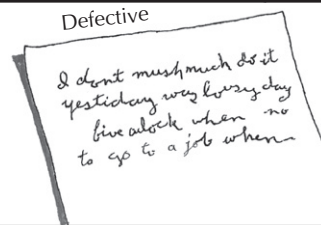 Defective
I dont mushmuch do it
yestiday way lousy day
five aclock when no
to go to a job when